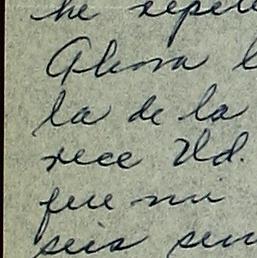 he repete
Ahora l
la de la
rece Ud.
fue mi
seis sen